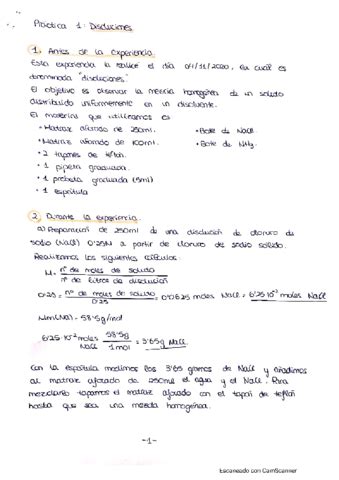 Práctica 1: Disoluciones
1. Antes de la experiencia
Esta experiencia la realicé el día 04/11/2020, la cual es
denominada "disoluciones".
El objetivo es observar la mezcla homogénea de un soluto
distribuido uniformemente en un disolvente.
El material que utilizamos es
• Matraz aforado de 250ml.
• Bote de NaCl.
• Matraz aforado de 100ml.
• Bote de NH3.
• 2 tapones de teflón.
• 1 pipeta graduada.
• 1 probeta graduada (5ml)
• 1 espátula
2. Durante la experiencia.
a) Preparación de 250ml de una disolución de cloruro de
sodio (NaCl) 0'25M a partir de cloruro de sodio sólido.
Realizamos los siguientes cálculos.
M = nº de moles de soluto / nº de litros de disolución
0'25 = nº de moles de soluto / 0'25 = 0'0625 moles NaCl = 6'25·10⁻² moles NaCl
Mm(NaCl) = 58'5g/mol
6'25·10⁻² moles NaCl 58'5g / 1mol = 3'65g NaCl
Con la espátula medimos los 3'65 gramos de NaCl y añadimos
al matraz aforado de 250ml el agua y el NaCl. Para
mezclarlo tapamos el matraz aforado con el tapón de teflón
hasta que sea una mezcla homogénea.
-1-
Escaneado con CamScanner